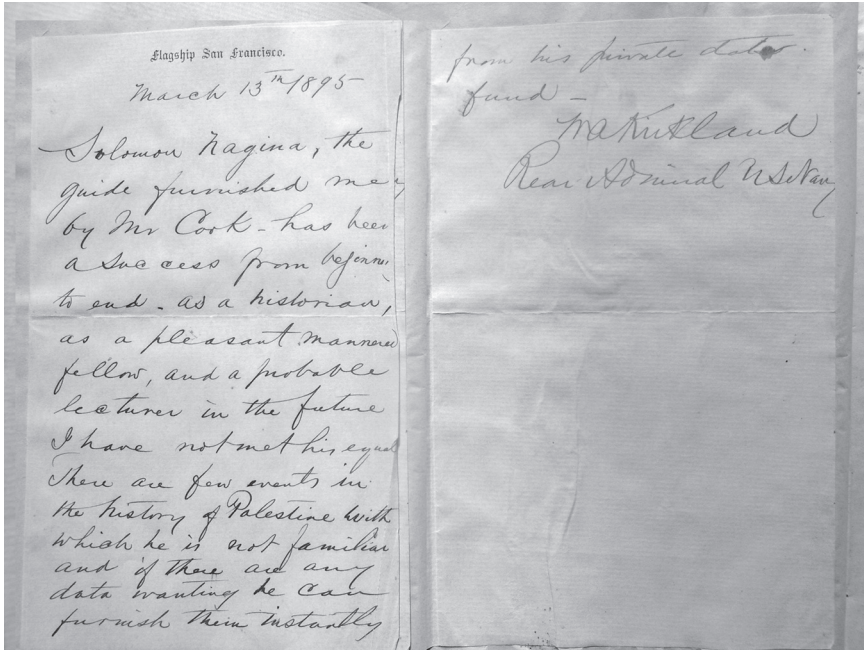 Flagship San Francisco.
March 13th 1895
Solomon Nagina, the
guide furnished me
by Mr Cook - has been
a success from beginning
to end - as a historian,
as a pleasant mannered
fellow, and a probable
lecturer in the future
I have not met his equal
There are few events in
the history of Palestine with
which he is not familiar
and if there are any
data wanting he can
furnish them instantly
from his private data
fund -
WA Kirkland
Rear Admiral US Navy